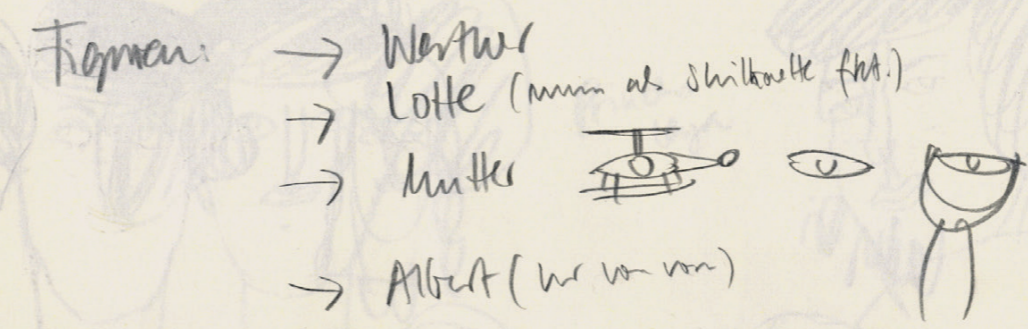 Figuren: → Werther
→ Lotte (nur als Silhouette
→ Mutter
→ Albert (nur von vorn)